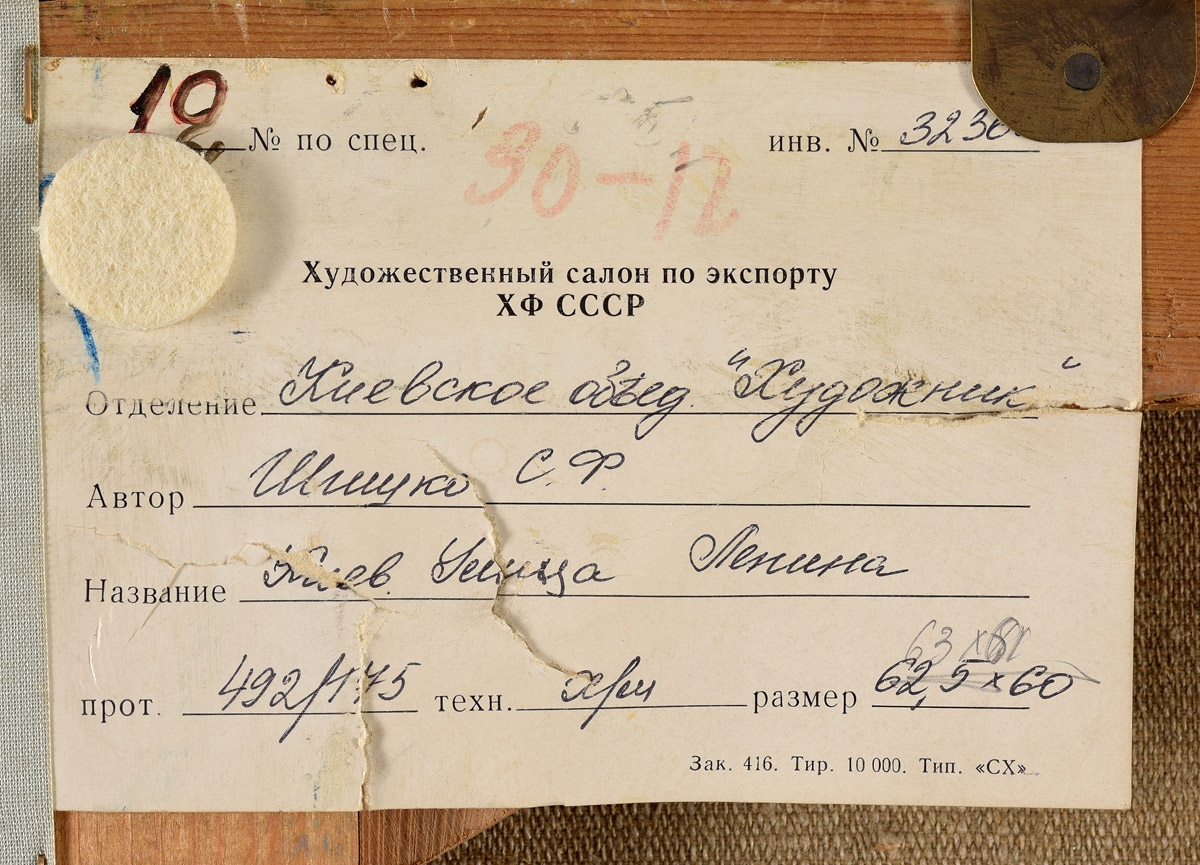 19 № по спец. инв. № 3236
30-12
Художественный салон по экспорту
ХФ СССР
Отделение Киевское объед. "Художник"
Автор Шишко С.Ф.
Название Киев. Улица Ленина
63 x 81
прот. 492/175 техн. х/м размер 62,5 x 60
Зак. 416. Тир. 10 000. Тип. «СХ»